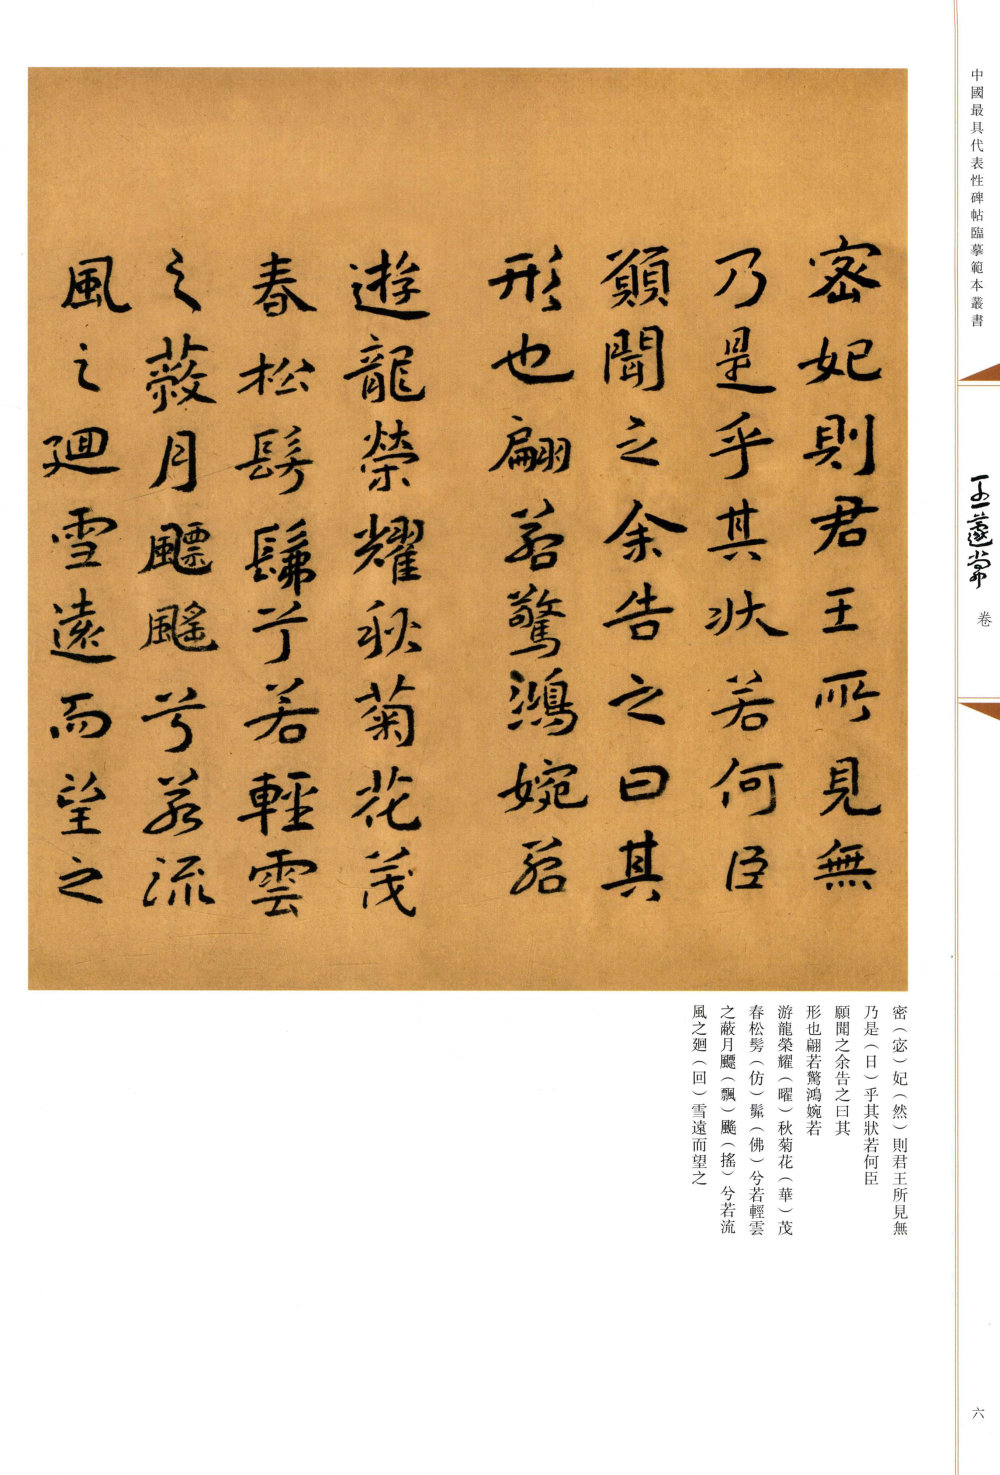 中國最具代表性碑帖臨摹範本叢書
王蘧常
卷
密妃則君王所見無
乃是乎其狀若何臣
願聞之余告之曰其
形也翩若驚鴻婉若
遊龍榮耀秋菊花茂
春松髣髴兮若輕雲
之蔽月飄颻兮若流
風之廻雪遠而望之
密（宓）妃（然）則君王所見無
乃是（日）乎其狀若何臣
願聞之余告之曰其
形也翩若驚鴻婉若
游龍榮耀（曜）秋菊花（華）茂
春松髣（仿）髴（佛）兮若輕雲
之蔽月飃（飄）颻（搖）兮若流
風之廻（回）雪遠而望之
六